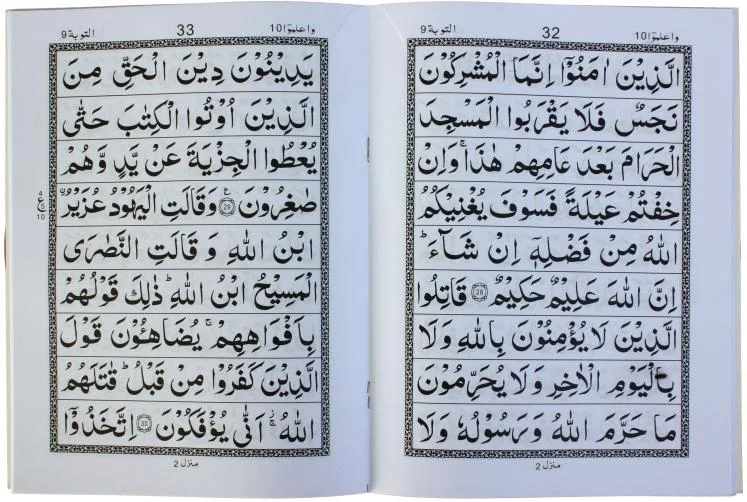 واعلموا 10 32 التوبة 9
الَّذِيْنَ اٰمَنُوْۤا اِنَّمَا الْمُشْرِكُوْنَ
نَجَسٌ فَلَا يَقْرَبُوا الْمَسْجِدَ
الْحَرَامَ بَعْدَ عَامِهِمْ هٰذَا ۚ وَاِنْ
خِفْتُمْ عَيْلَةً فَسَوْفَ يُغْنِيْكُمُ
اللّٰهُ مِنْ فَضْلِهٖۤ اِنْ شَآءَ ؕ
اِنَّ اللّٰهَ عَلِيْمٌ حَكِيْمٌ 28 قَاتِلُوا
الَّذِيْنَ لَا يُؤْمِنُوْنَ بِاللّٰهِ وَلَا
بِالْيَوْمِ الْاٰخِرِ وَلَا يُحَرِّمُوْنَ
مَا حَرَّمَ اللّٰهُ وَرَسُوْلُهٗ وَلَا
منزل 2
واعلموا 10 33 التوبة 9
يَدِيْنُوْنَ دِيْنَ الْحَقِّ مِنَ
الَّذِيْنَ اُوْتُوا الْكِتٰبَ حَتّٰى
يُعْطُوا الْجِزْيَةَ عَنْ يَّدٍ وَّهُمْ
صٰغِرُوْنَ 29 ع وَقَالَتِ الْيَهُوْدُ عُزَيْرُ
4 ع 10
ابْنُ اللّٰهِ وَ قَالَتِ النَّصٰرَى
الْمَسِيْحُ ابْنُ اللّٰهِ ؕ ذٰلِكَ قَوْلُهُمْ
بِاَفْوَاهِهِمْ ۚ يُضَاهِـُٔوْنَ قَوْلَ
الَّذِيْنَ كَفَرُوْا مِنْ قَبْلُ ؕ قٰتَلَهُمُ
اللّٰهُ ۚ اَنّٰى يُؤْفَكُوْنَ 30 اِتَّخَذُوْۤا
منزل 2